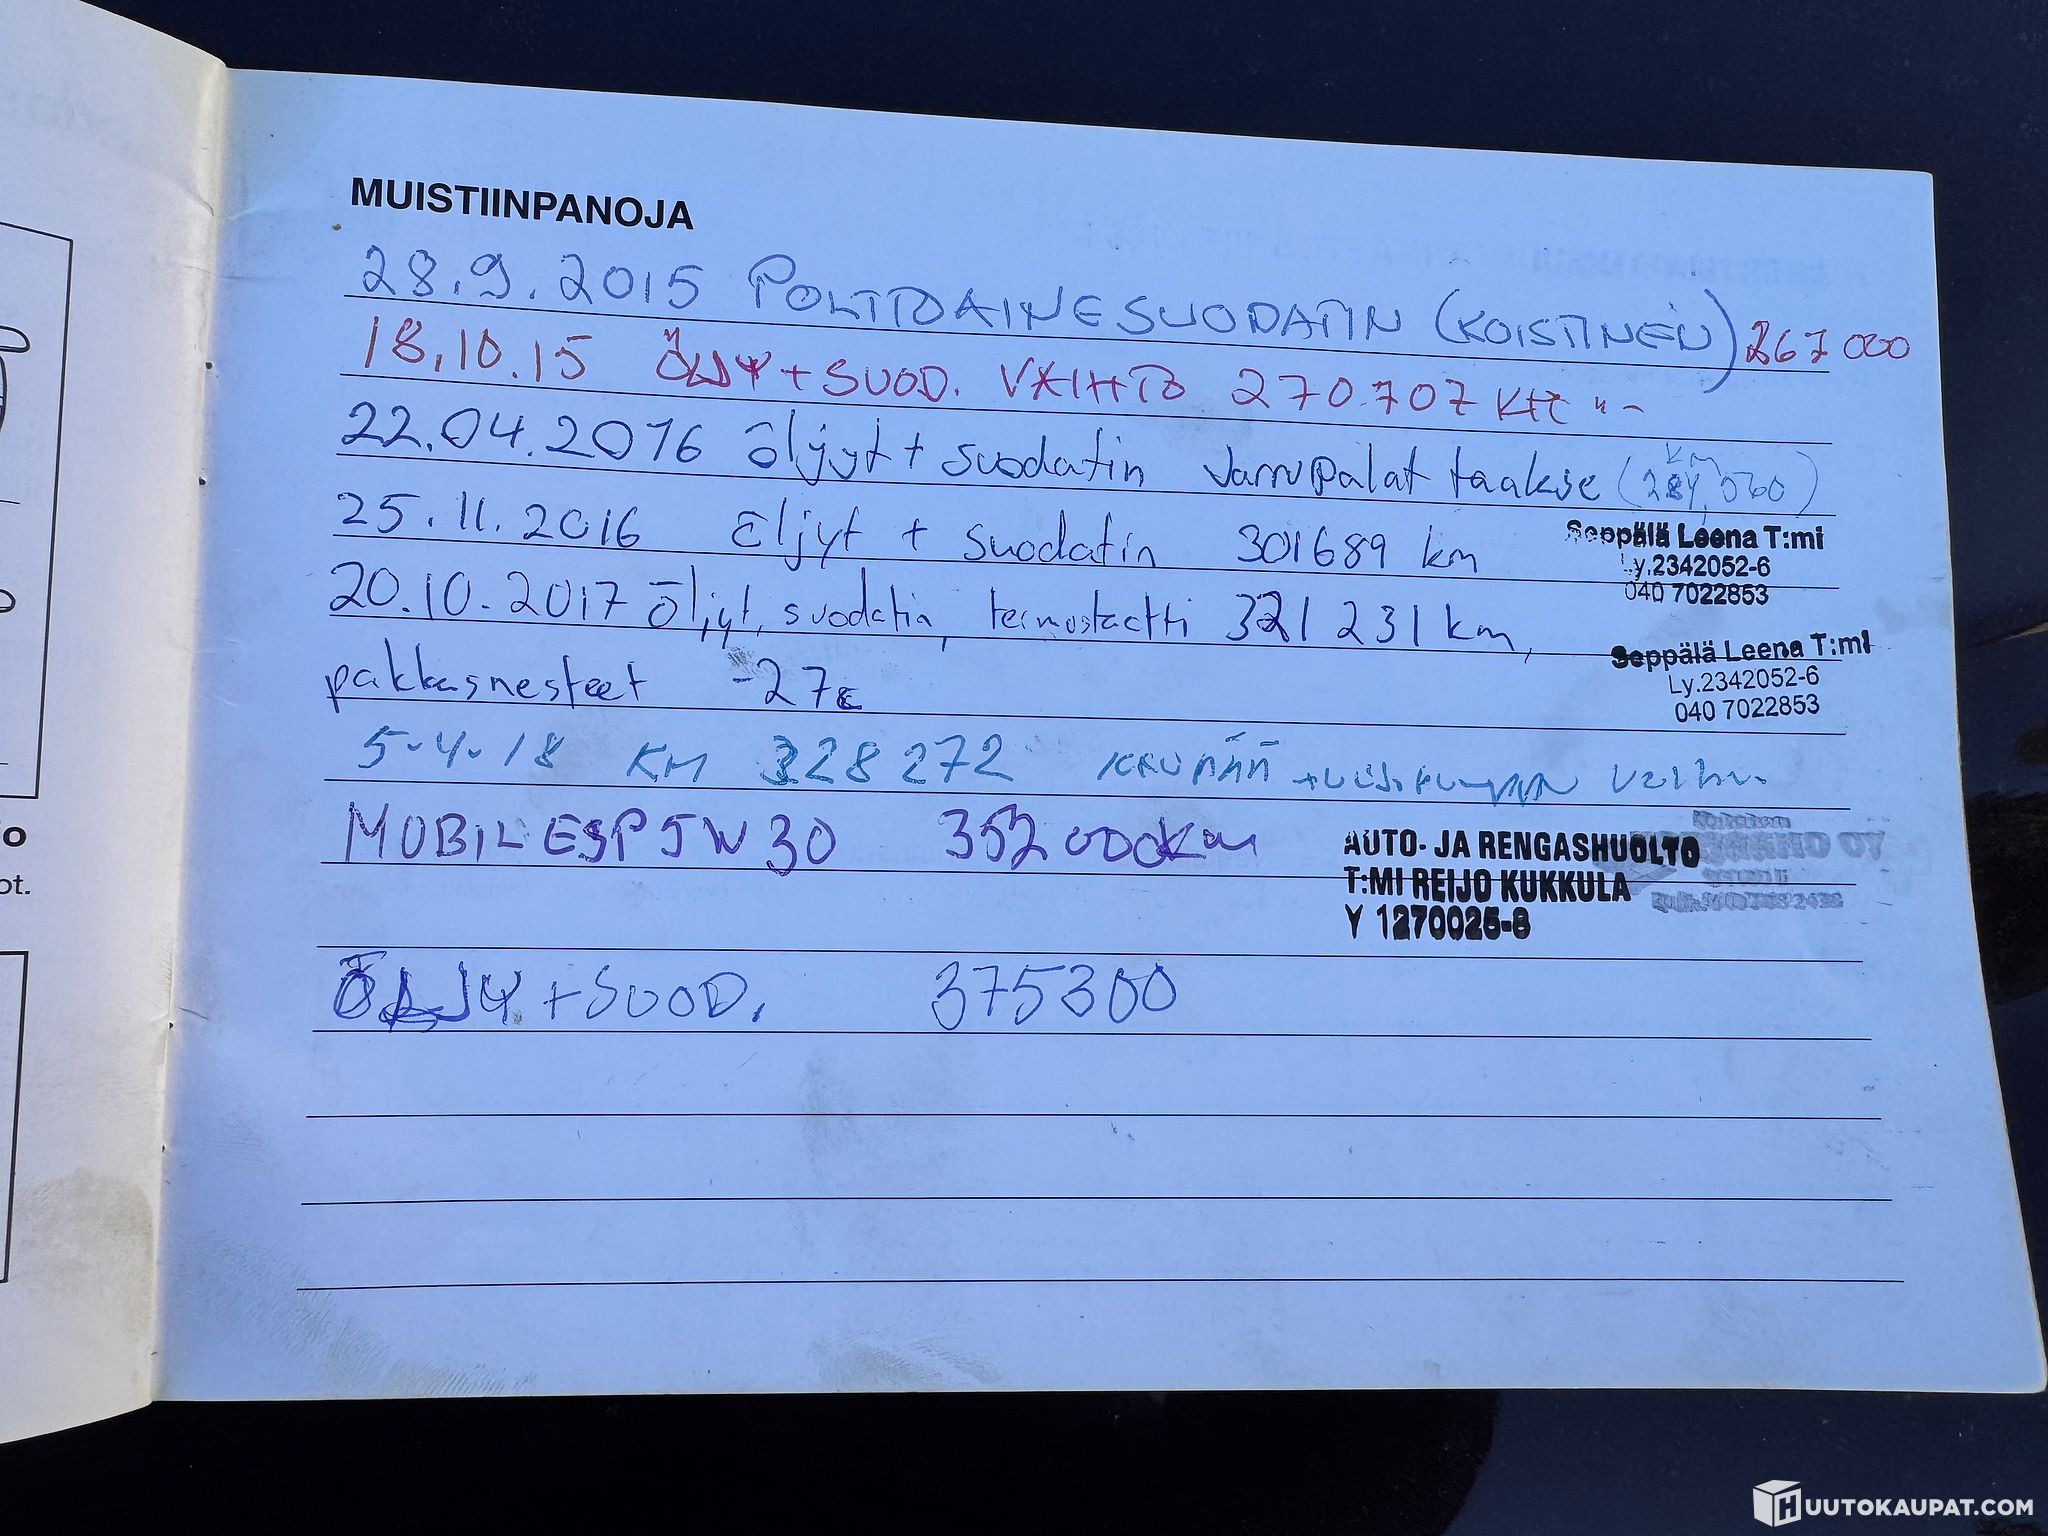 MUISTIINPANOJA
28.9.2015 POLTTOAINESUODATIN (KOISTINEN) 267 000
18.10.15 ÖLJY + SUOD. VAIHTO 270.707
22.04.2016 öljyt + suodatin Jarrupalat taakse ( km )
25.11.2016 Öljyt + suodatin 301689 km
Seppälä Leena T:mi
Ly.2342052-6
040 7022853
20.10.2017 Öljyt, suodatin, termostaatti 321 231 km,
pakkasnesteet -27c
Seppälä Leena T:mi
Ly.2342052-6
040 7022853
5-4-18 KM 328272
MOBIL ESP 5W30 352 000km
AUTO- JA RENGASHUOLTO
T:MI REIJO KUKKULA
Y 1270025-8
ÖLJY + SUOD. 375300
o
ot.
HUUTOKAUPAT.COM